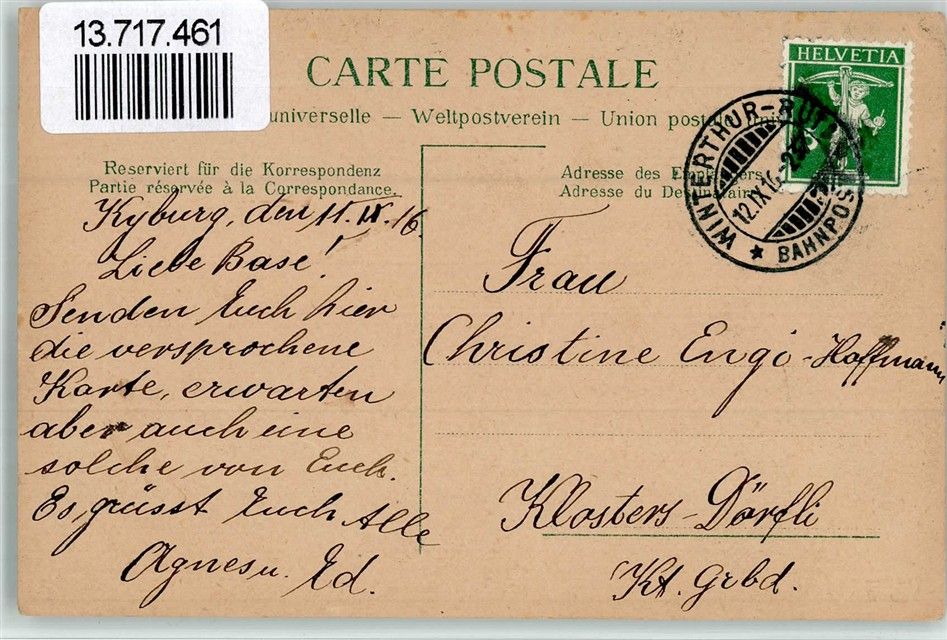 13.717.461
CARTE POSTALE
universelle — Weltpostverein — Union postale
Reserviert für die Korrespondenz
Partie réservée à la Correspondance.
Adresse des Empfängers
Adresse du Destinataire
HELVETIA
WINTERTHUR-RÜTI
12.IX.16
BAHNPOST
Kyburg, den 11.IX.16.
Liebe Base!
Senden Euch hier
die versprochene
Karte, erwarten
aber auch eine
solche von Euch.
Es grüsst Euch Alle
Agnes u. Ed.
Frau
Christine Engi-Hoffmann
Klosters-Dörfli
Kt. Grbd.